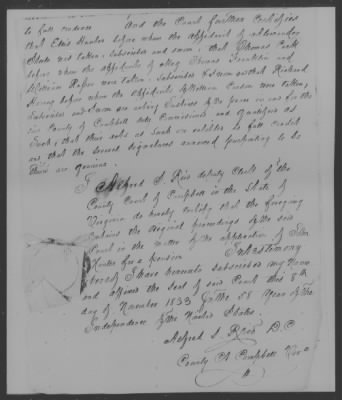 to full credence. And the Court further certifies
that Edw Hunter before whom the affidavit of Alexander
State was taken, subscribed and sworn, that Thomas
before whom the affidavits of Mary Franklin and
William were taken, subscribed & sworn & that Richard
before whom the affidavit of William was taken,
Subscribed and sworn are acting Justices of the peace in and for the
County of Campbell duly Commissioned and qualified as
such, that their acts as such are entitled to full credit
and that the several signatures annexed purporting to be
theirs are genuine.
I Alfred S. Rice deputy Clerk of the
County Court of Campbell in the State of
Virginia do hereby certify that the foregoing
contains the original proceedings of the said
Court in the matter of the application of John
Hunter for a pension In testimony
whereof I have hereunto subscribed my name
and affixed the seal of said Court this 8th
day of November 1833 In the 58 Year of the
Independence of the United States.
Alfred S. Rice D.C
County Ct Campbell